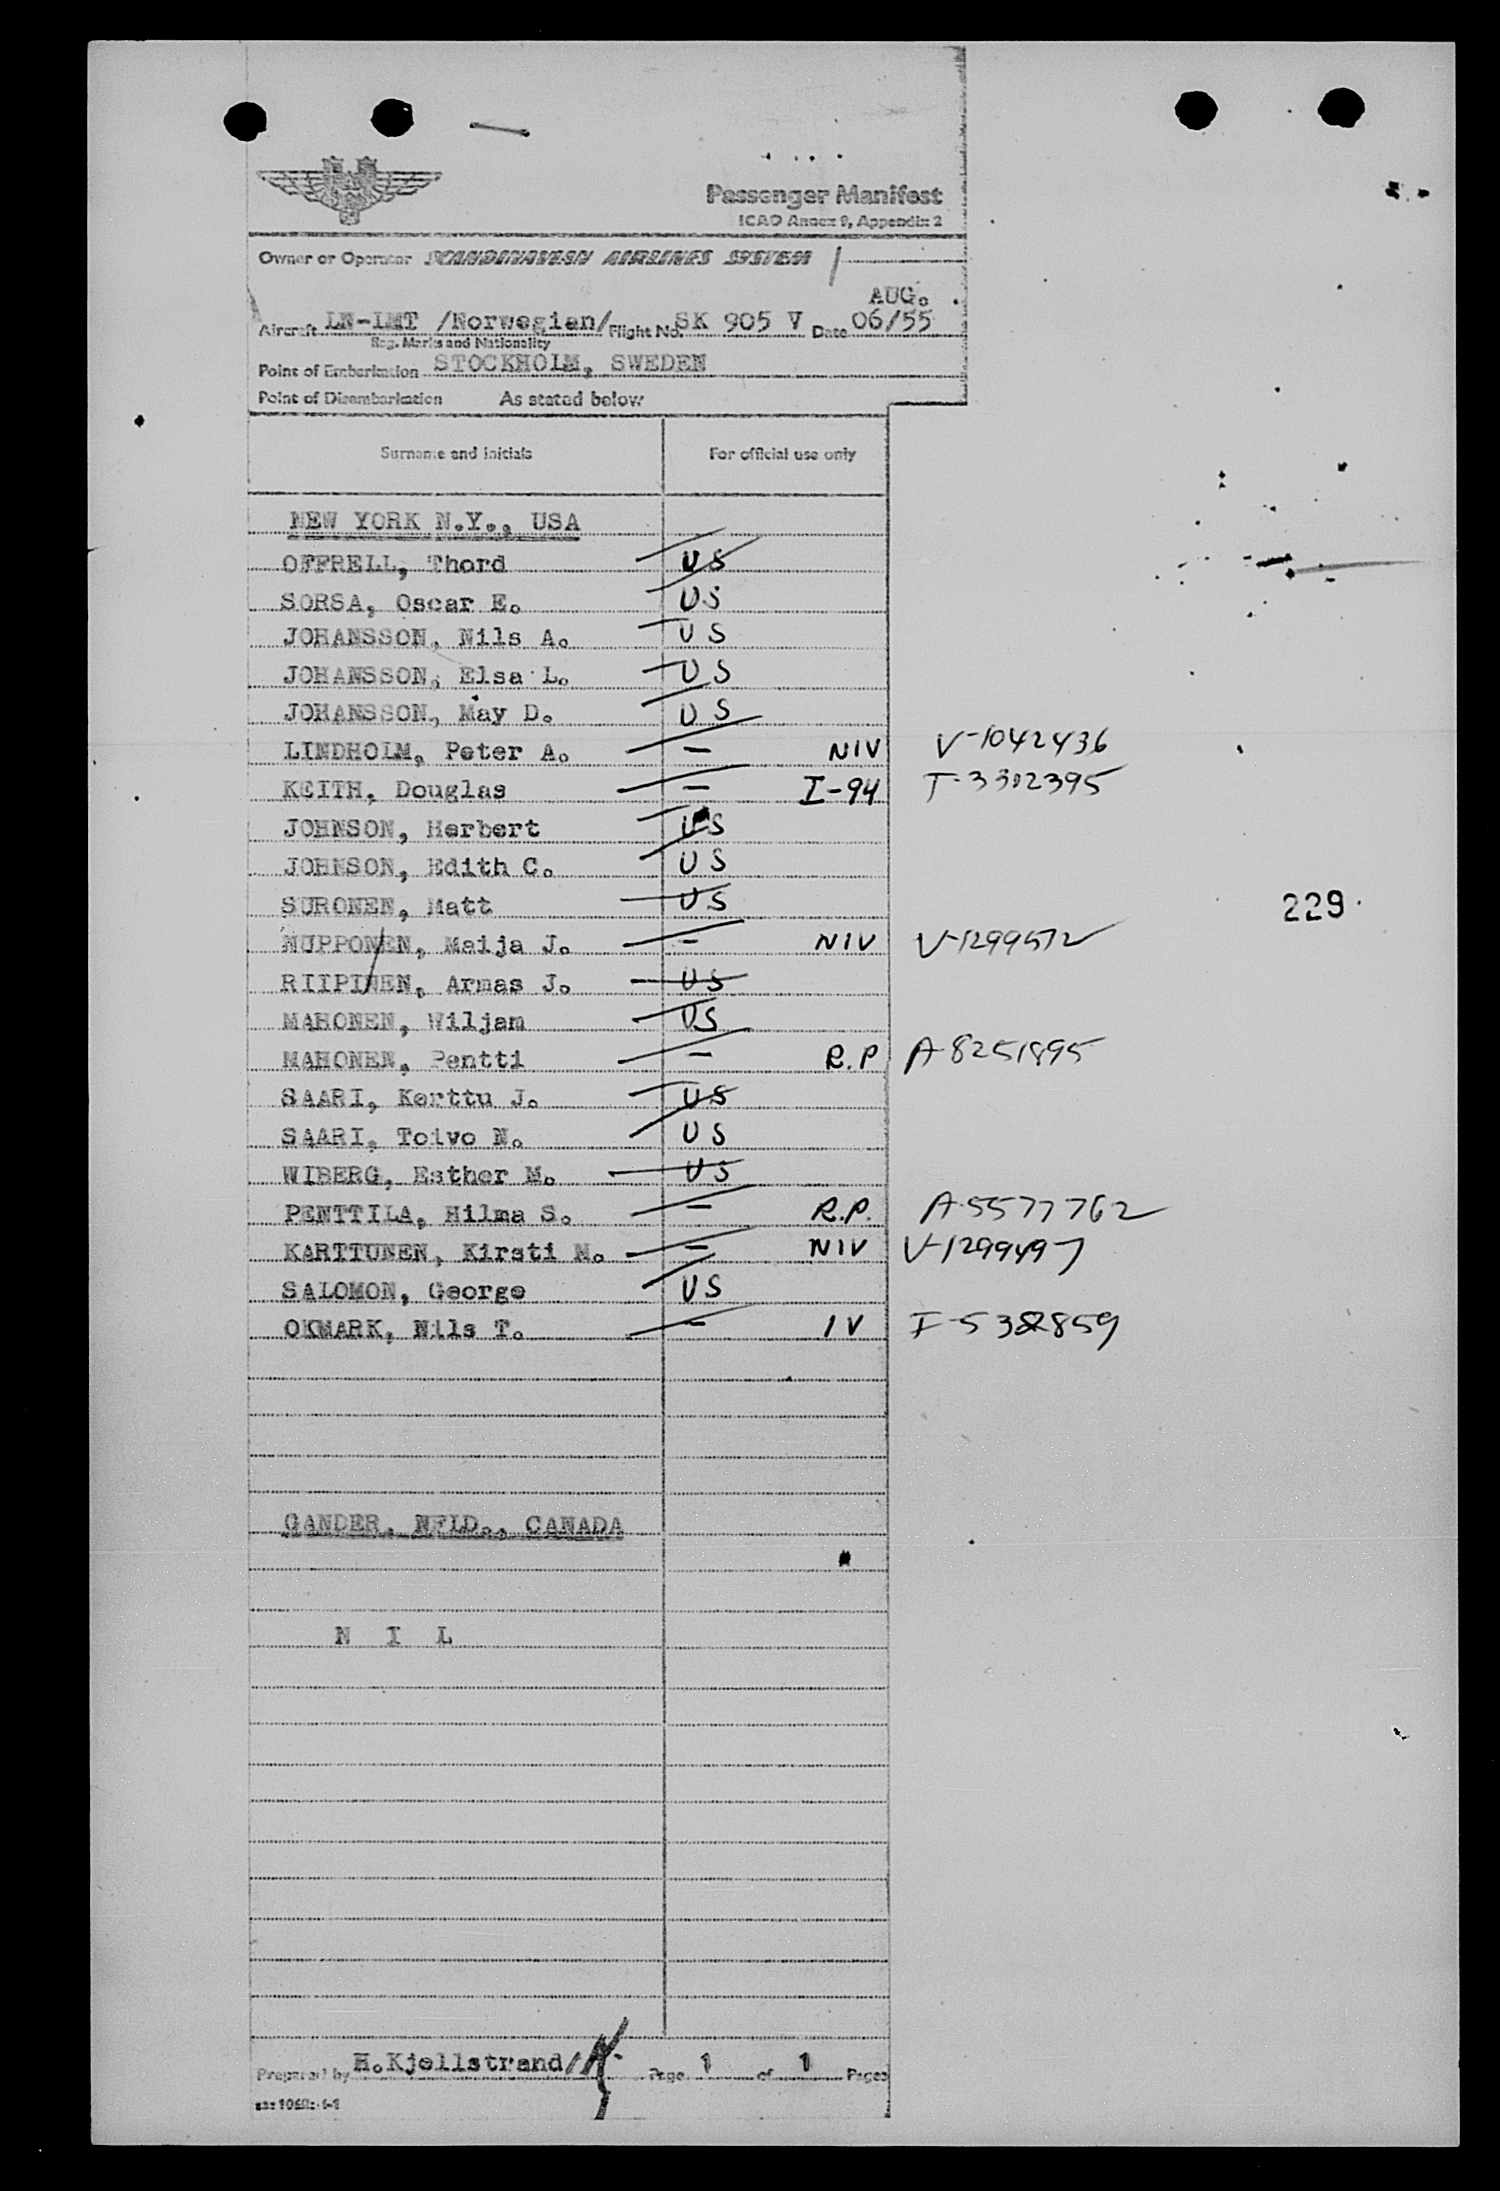 Passenger Manifest
ICAO Annex 9, Appendix 2
Owner or Operator SCANDINAVIAN AIRLINES SYSTEM
AUG.
Aircraft LN-LMT /Norwegian/ Flight No. SK 905 V Date 06/55
Reg. Marks and Nationality
Point of Embarkation STOCKHOLM, SWEDEN
Point of Disembarkation As stated below
Surname and initials For official use only
NEW YORK N.Y., USA
OFFRELL, Thord US
SORSA, Oscar E. US
JOHANSSON, Nils A. US
JOHANSSON, Elsa L. US
JOHANSSON, May D. US
LINDHOLM, Peter A. — NIV V-1042436
KEITH, Douglas — I-94 T-3302395
JOHNSON, Herbert US
JOHNSON, Edith C. US
SURONEN, Matt US
229
NUPPONEN, Maija J. — NIV V-1299512
RIIPINEN, Armas J. US
MAHONEN, Wiljam US
MAHONEN, Pentti — R.P A-8251895
SAARI, Kerttu J. US
SAARI, Toivo N. US
WIBERG, Esther M. US
PENTTILA, Hilma S. — R.P. A-5577762
KARTTUNEN, Kirsti M. — NIV V-1299497
SALOMON, George US
OKMARK, Nils T. — IV I-538859
GANDER, NFLD., CANADA
N I L
Prepared by H.Kjellstrand/ Page 1 of 1 Pages